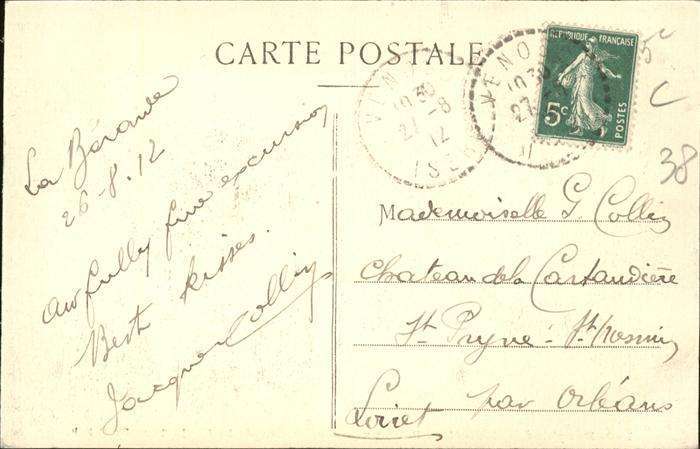 CARTE POSTALE
REPUBLIQUE FRANÇAISE
5c
POSTES
VENO
10 30
27
VIN
10 30
27 -8
12
ISÈRE
5c
C
38
La Bérarde
26-8.12
awfully fine excursion
Best kisses.
Jacques Collin
Mademoiselle G. Collin
Chateau de la
St Pryvé - St
par Orléans
Loiret